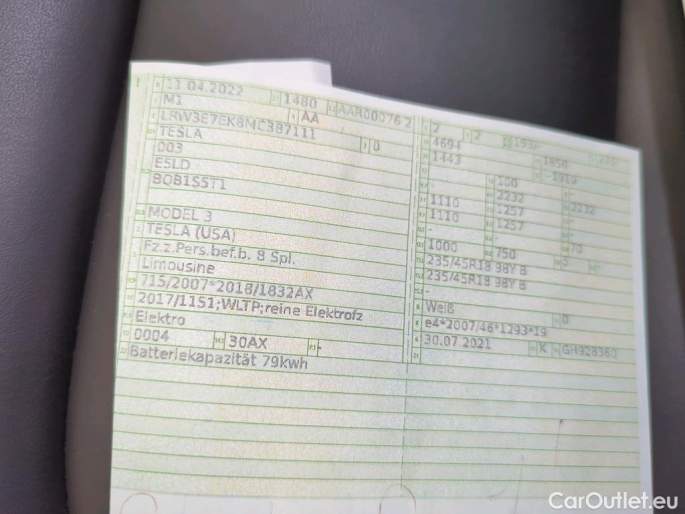 11.04.2022 1480 AAR00076 2
M1 AA
LRW3E7EK8MC387111
TESLA 0
003
E5LD
MODEL 3
TESLA (USA)
Fz.z.Pers.bef.b. 8 Spl.
Limousine
715/2007*2018/1832AX
2017/1151;WLTP;reine Elektrofz
Elektro
0004 30AX -
Batteriekapazität 79kwh
2 2
4694
1443
2232 2232
1110 1257
1110 1257
- -
1000 750
235/45R18 98Y B
235/45R18 98Y B
-
Weiß 0
e4*2007/46*1293*19
30.07.2021 K
CarOutlet.eu